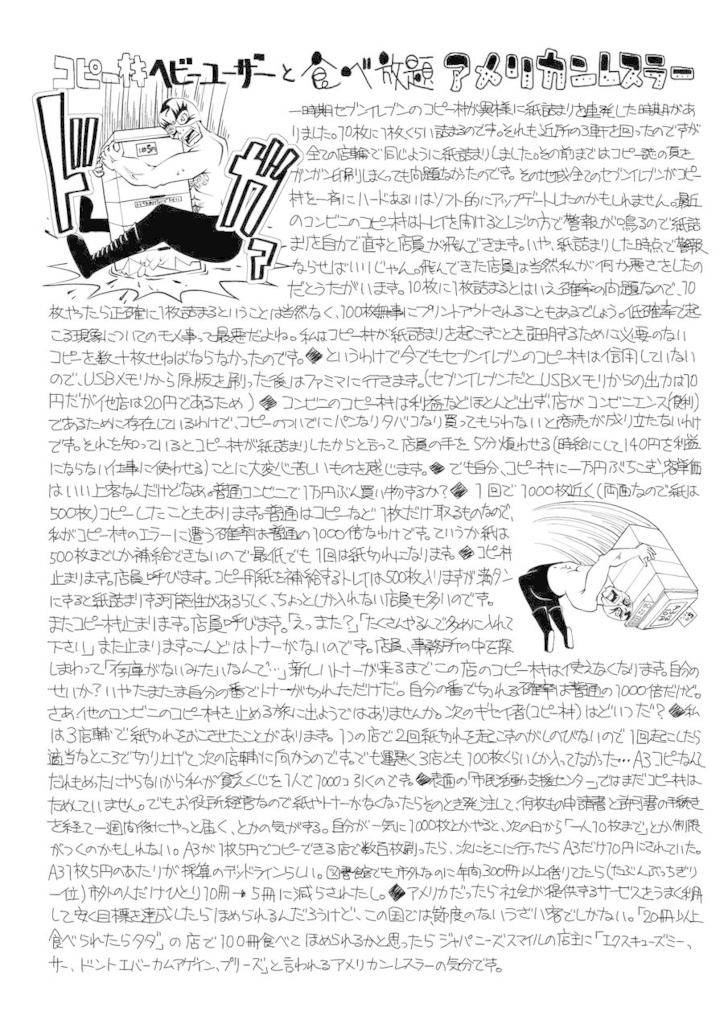 コピー機ヘビーユーザーと食べ放題アメリカンレスラー
一時期セブンイレブンのコピー機が異様に紙詰まりを連発した時期があ
りました。10枚に1枚くらい詰まるのです。それも近所の3軒を回ったのですが
全ての店舗で同じように紙詰まりしました。その前まではコピー誌の頁を
ガンガン印刷しまくっても問題なかったのです。その地域全てのセブンイレブンがコピー
機を一斉にハードあるいはソフト的にアップデートしたのかもしれません。最近
のコンビニのコピー機はトレイを開けるとレジの方で警報が鳴るので紙詰
まりを自力で直すと店員が飛んできます。いや、紙詰まりした時点で警報
ならせばいいじゃん。飛んできた店員は当然私が何か悪さをしたの
だとうたがいます。10枚に1枚詰まるとはいえ確率の問題なので、10
枚やったら正確に1枚詰まるということは当然なく、100枚無事にプリントアウトされることもあるでしょう。低確率で起
こる現象についてのモメ事って最悪だよね。私はコピー機が紙詰まりを起こすことを証明するために必要のない
コピーを数十枚せねばならなかったのです。◆というわけで今でもセブンイレブンのコピー機は信用していない
ので、USBメモリから原版を刷った後はファミマに行きます。(セブンイレブンだとUSBメモリからの出力は10
円だが他店は20円であるため)◆コンビニのコピー機は利益などほとんど出ず、店がコンビニエンス(便利)
であるために存在しているわけで、コピーのついでにパンなりタバコなり買ってもらわないと商売が成り立たないわけ
です。それを知っているとコピー機が紙詰まりしたからと言って店員の手を5分煩わせる(時給にして140円を利益
にならない仕事に使わせる)ことに大変心苦しいものを感じます。◆でも自分、コピー機に一万円ぶちこむ客単価
はいい上客なんだけどなあ。普通コンビニで1万円ぶん買い物するか?◆1回で1000枚近く(両面なので紙は
500枚)コピーしたこともあります。普通はコピーなど1枚だけ取るものなので、
私がコピー機のエラーに遭う確率は普通の1000倍なわけです。ていうか紙は
500枚までしか補給できないので最低でも1回は紙切れになります。◆コピー機
止まります。店員呼びます。コピー用紙を補給するトレイは500枚入りますが満タン
にすると紙詰まりする可能性があるらしく、ちょっとしか入れない店員も多いのです。
またコピー機止まります。店員呼びます。「えっ、また?」「たくさんやるんで多めに入れて
下さい」また止まります。こんどはトナーがないのです。店員、事務所の中を探
しまわって「存庫がないみたいなんで…」新しいトナーが来るまでこの店のコピー機は使えなくなります。自分の
せいか?いやたまたま自分の番でトナーが切れただけだ。自分の番で切れる確率は普通の1000倍だけど。
さあ、他のコンビニのコピー機を止める旅に出ようではありませんか。次のギセイ者(コピー機)はどいつだ?◆私
は3店舗で紙切れをおこさせたことがあります。1つの店で2回紙切れを起こすのがしのびないので1回起こしたら
適当なところで切り上げて次の店舗に向かうのです。でも運悪く3店とも100枚くらいしか入ってなかった…A3コピーなんて
だれもめったにやらないから私が貧乏くじを1人で1000コ引くのです。◆表面の「市民活動支援センター」ではまだコピー機は
ためしていません。でもお役所経営なので紙やトナーがなくなったらそのとき発注して、何枚もの申請書と許可書の手続き
を経て一週間後にやっと届く、とかの気がする。自分が一気に1000枚とかやると、次の日から「一人10枚まで」とか制限
がつくのかもしれない。A3が1枚5円でコピーできる店で数百枚刷ったら、次にそこに行ったらA3だけ10円にされていた。
A3 1枚5円のあたりが採算のデッドラインらしい。図書館でも市外なのに年間300冊以上借りてたら(たぶんぶっちぎり
一位)市外の人だけひとり10冊→5冊に減らされたし。◆アメリカだったら社会が提供するサービスをうまく利用
して安く目標を達成したらほめられるんだろうけど、この国では節度のないうざい客でしかない。「20冊以上
食べられたらタダ」の店で100冊食べてほめられるかと思ったらジャパニーズスマイルの店主に「エクスキューズミー、
サー、ドントエバーカムアゲイン、プリーズ」と言われるアメリカンレスラーの気分です。
ドガ?